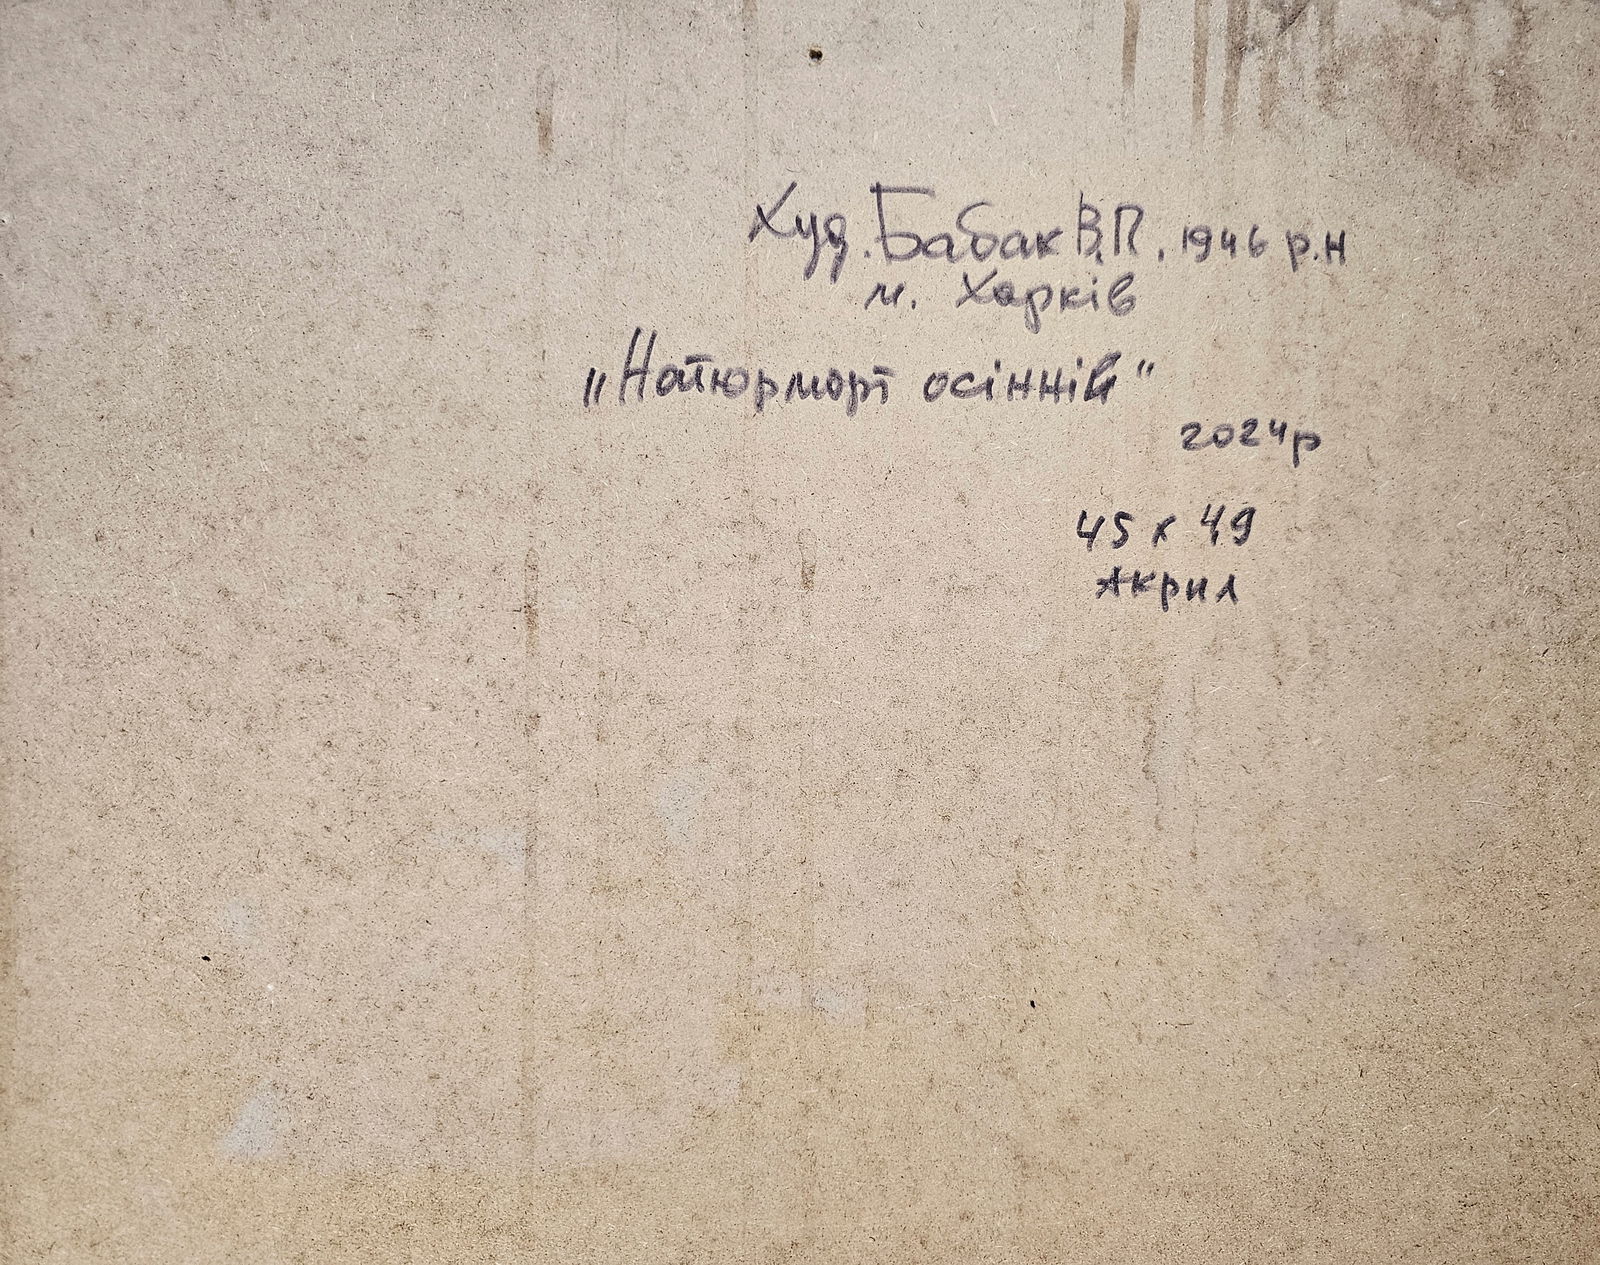 Худ. Бабак В.П. 1946 р.н
м. Харків
„Натюрморт осінній"
2024р
45 х 49
Акрил